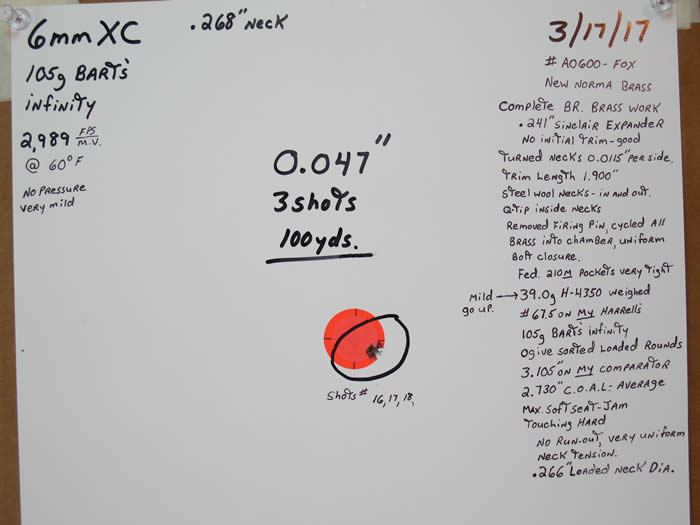 6mm XC
.268" Neck
105g BART'S
infinity
2,989 FPS/M.V.
@ 60°F
No Pressure
very mild
0.047"
3 shots
100 yds.
Shots # 16, 17, 18,
3/17/17
# A0600 - FOX
New Norma Brass
Complete BR. Brass Work
.241" Sinclair Expander
No initial Trim-good
Turned Necks 0.0115" Per side.
Trim Length 1.900"
Steel wool Necks - in and out.
Q-Tip inside Necks
Removed Firing Pin, cycled All
Brass into chamber, uniform
Bolt closure.
Fed. 210M Pockets very tight
Mild → 39.0g H-4350 weighed
go up.
#67.5 on My Harrell's
105g BART's infinity
Ogive sorted Loaded Rounds
3.105" on My Comparator
2.730" C.O.A.L: Average
Max. Soft Seat-Jam
Touching Hard
No Run-out, very uniform
Neck Tension.
.266" Loaded Neck Dia.